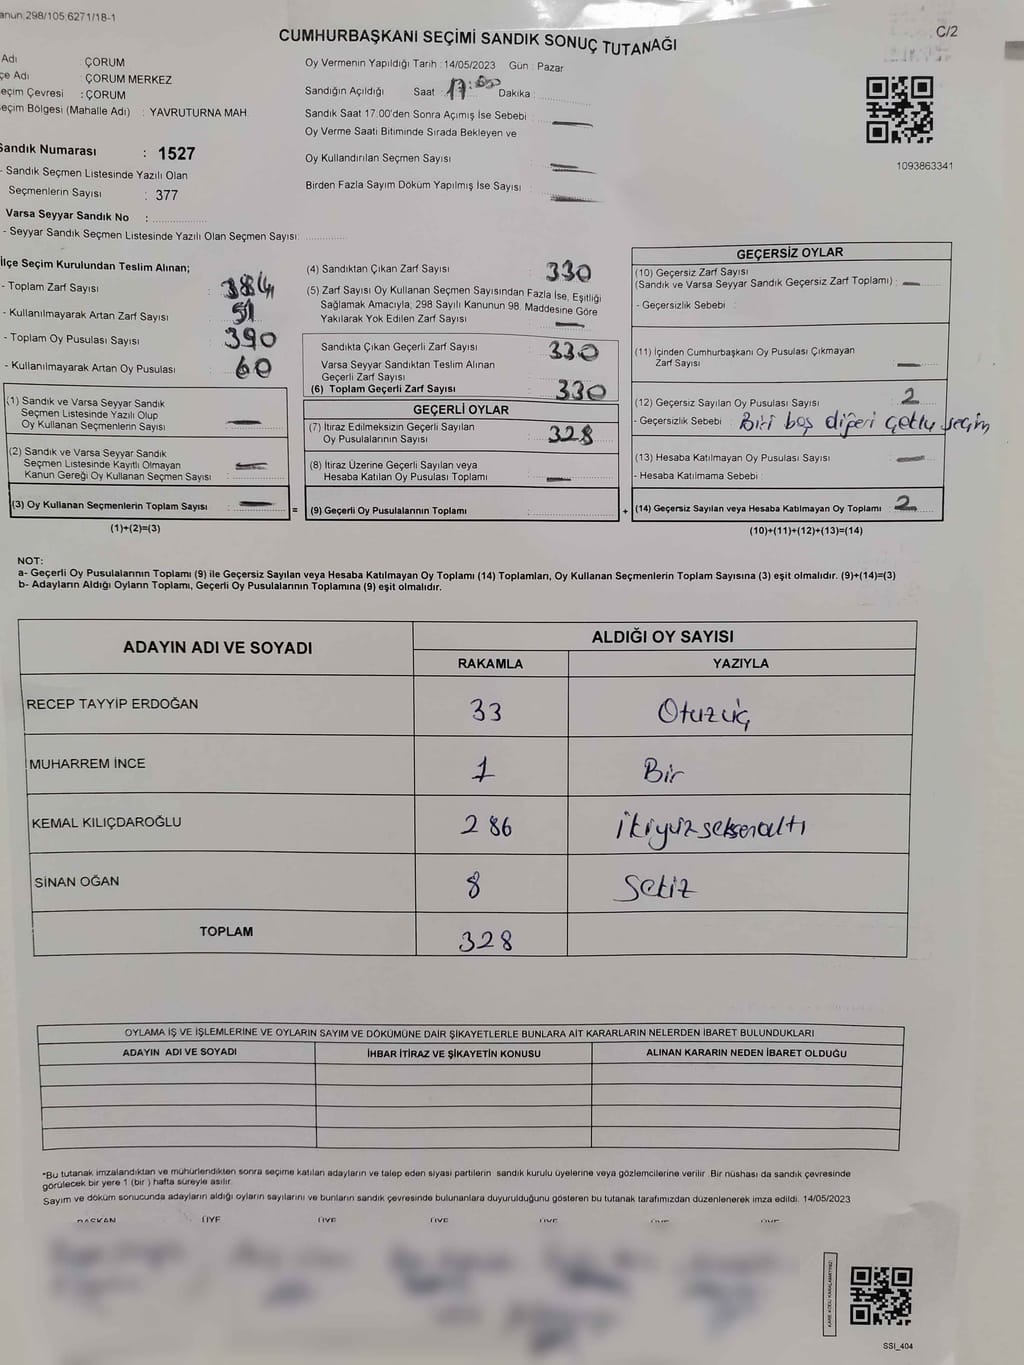 anun:298/105;6271/18-1
C/2
CUMHURBAŞKANI SEÇİMİ SANDIK SONUÇ TUTANAĞI
Adı : ÇORUM
çe Adı : ÇORUM MERKEZ
eçim Çevresi : ÇORUM
eçim Bölgesi (Mahalle Adı) : YAVRUTURNA MAH.
Sandık Numarası : 1527
- Sandık Seçmen Listesinde Yazılı Olan
Seçmenlerin Sayısı : 377
Varsa Seyyar Sandık No :
- Seyyar Sandık Seçmen Listesinde Yazılı Olan Seçmen Sayısı:
Oy Vermenin Yapıldığı Tarih : 14/05/2023 Gün : Pazar
Sandığın Açıldığı Saat : 17:00 Dakika :
Sandık Saat 17:00'den Sonra Açımış İse Sebebi :
Oy Verme Saati Bitiminde Sırada Bekleyen ve
Oy Kullandırılan Seçmen Sayısı
Birden Fazla Sayım Döküm Yapılmış İse Sayısı
1093863341
İlçe Seçim Kurulundan Teslim Alınan;
- Toplam Zarf Sayısı : 384
- Kullanılmayarak Artan Zarf Sayısı : 51
- Toplam Oy Pusulası Sayısı : 390
- Kullanılmayarak Artan Oy Pusulası : 60
(1) Sandık ve Varsa Seyyar Sandık
Seçmen Listesinde Yazılı Olup
Oy Kullanan Seçmenlerin Sayısı
(2) Sandık ve Varsa Seyyar Sandık
Seçmen Listesinde Kayıtlı Olmayan
Kanun Gereği Oy Kullanan Seçmen Sayısı
(3) Oy Kullanan Seçmenlerin Toplam Sayısı
(1)+(2)=(3)
(4) Sandıktan Çıkan Zarf Sayısı 330
(5) Zarf Sayısı Oy Kullanan Seçmen Sayısından Fazla İse, Eşitliği
Sağlamak Amacıyla, 298 Sayılı Kanunun 98. Maddesine Göre
Yakılarak Yok Edilen Zarf Sayısı
Sandıkta Çıkan Geçerli Zarf Sayısı 330
Varsa Seyyar Sandıktan Teslim Alınan
Geçerli Zarf Sayısı
(6) Toplam Geçerli Zarf Sayısı 330
GEÇERLİ OYLAR
(7) İtiraz Edilmeksizin Geçerli Sayılan
Oy Pusulalarının Sayısı 328
(8) İtiraz Üzerine Geçerli Sayılan veya
Hesaba Katılan Oy Pusulası Toplamı
= (9) Geçerli Oy Pusulalarının Toplamı +
GEÇERSİZ OYLAR
(10) Geçersiz Zarf Sayısı
(Sandık ve Varsa Seyyar Sandık Geçersiz Zarf Toplamı) :
- Geçersizlik Sebebi :
(11) İçinden Cumhurbaşkanı Oy Pusulası Çıkmayan
Zarf Sayısı
(12) Geçersiz Sayılan Oy Pusulası Sayısı 2
- Geçersizlik Sebebi : Biri boş diğeri çoklu seçim
(13) Hesaba Katılmayan Oy Pusulası Sayısı
- Hesaba Katılmama Sebebi :
(14) Geçersiz Sayılan veya Hesaba Katılmayan Oy Toplamı 2
(10)+(11)+(12)+(13)=(14)
NOT:
a- Geçerli Oy Pusulalarının Toplamı (9) ile Geçersiz Sayılan veya Hesaba Katılmayan Oy Toplamı (14) Toplamları, Oy Kullanan Seçmenlerin Toplam Sayısına (3) eşit olmalıdır. (9)+(14)=(3)
b- Adayların Aldığı Oyların Toplamı, Geçerli Oy Pusulalarının Toplamına (9) eşit olmalıdır.
ADAYIN ADI VE SOYADI ALDIĞI OY SAYISI
RAKAMLA YAZIYLA
RECEP TAYYİP ERDOĞAN 33 Otuzüç
MUHARREM İNCE 1 Bir
KEMAL KILIÇDAROĞLU 286 İkiyüzseksenaltı
SİNAN OĞAN 8 Sekiz
TOPLAM 328
OYLAMA İŞ VE İŞLEMLERİNE VE OYLARIN SAYIM VE DÖKÜMÜNE DAİR ŞİKAYETLERLE BUNLARA AİT KARARLARIN NELERDEN İBARET BULUNDUKLARI
ADAYIN ADI VE SOYADI İHBAR İTİRAZ VE ŞİKAYETİN KONUSU ALINAN KARARIN NEDEN İBARET OLDUĞU
*Bu tutanak imzalandıktan ve mühürlendikten sonra seçime katılan adayların ve talep eden siyasi partilerin sandık kurulu üyelerine veya gözlemcilerine verilir .Bir nüshası da sandık çevresinde
görülecek bir yere 1 (bir ) hafta süreyle asılır.
Sayım ve döküm sonucunda adayların aldığı oyların sayılarını ve bunların sandık çevresinde bulunanlara duyurulduğunu gösteren bu tutanak tarafımızdan düzenlenerek imza edildi. 14/05/2023
BAŞKAN ÜYE ÜYE ÜYE ÜYE ÜYE ÜYE
SSI_404